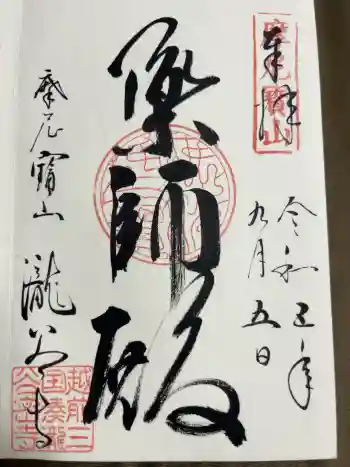 奉拝
令和五年
九月五日
薬師殿
摩尼寳山
瀧谷寺
越前三
国湊瀧
谷寺